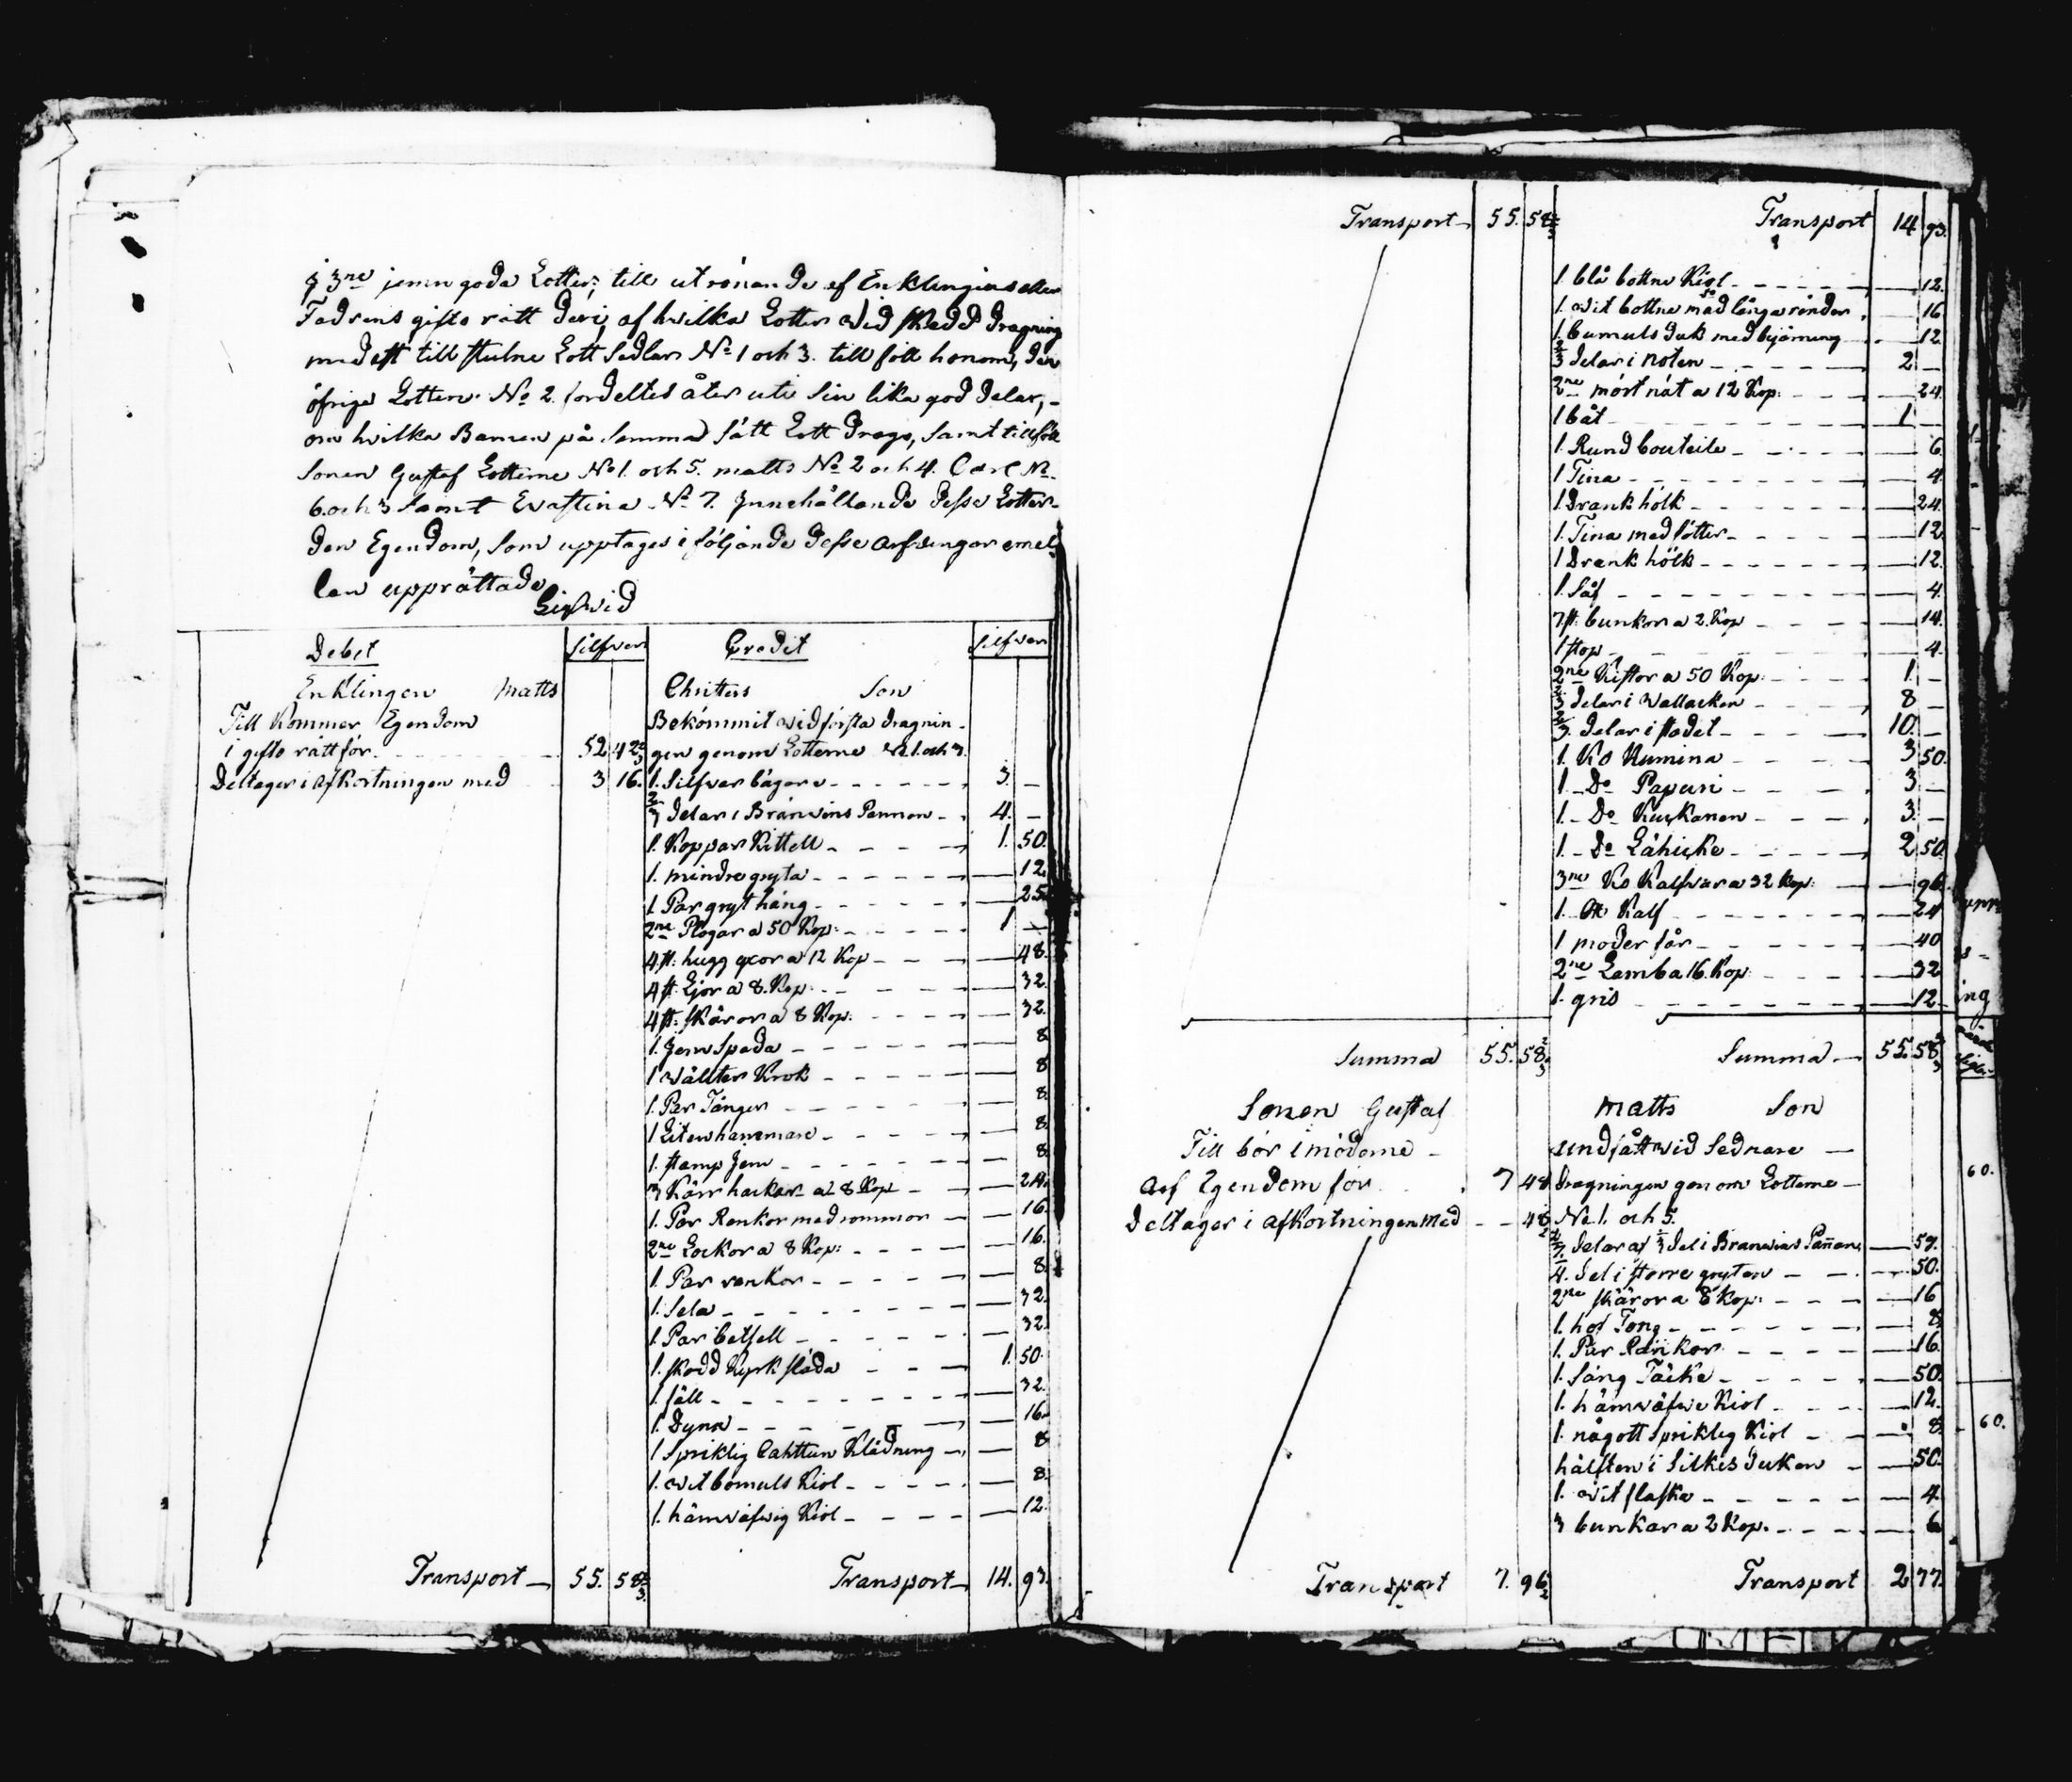 i 3ne jemn goda Lotter; till utrönande af Enklingens eller
Fadrens gifto rätt deri, af hvilka Lotter vid skedd dragning
medelst till slutne Lott Sedlar No 1 och 3. till föll honom, den
öfrige Lotten No 2 fördeltes åter uti siu lika god delar,
om hvilka Barnen på samma sätt Lott drogo, samt tillföll
Sonen Gustaf Lotterne No 1. och 5. matts No 2 och 4. Carl No
6. och 3 samt Evastina No 7. Innehållande desse Lotter
den Egendom, som upptages i följande desse arfvingar emel
lan upprättade
Liqvid
Debet Silfver Credit Silfver
Enklingen Matts Christers Son
Till kommer Egendom Bekommit vid första dragnin
i gifto rätt för 52 42 2/3 gen genom Lotterne No 1. och 3.
Deltager i afkortningen med 3 16. 1. Silfver bägare 3. –
2/3 delar i Bränvins Pannan 4. –
1. Koppar Kittell 1. 50.
1. mindre gryta 12.
1. Par gryt häng 25.
2ne Plogar a 50 Kop: 1 –
4 st: hugg yxor a 12 Kop 48.
4 st: Ljor a 8. Kop: 32.
4 st: skäror a 8 Kop: 32.
1. Jern Spada 8
1 wällter Krok 8
1. Par Tänger 8.
1 Liten hammare 8.
1. stamp Jern 8.
3 Kärr hackor a 8 Kop 24.
1. Par Rankor med rommor 16.
2ne Lockor a 8 Kop: 16.
1. Par rankor 8.
1. Sela 32.
1. Par betsell 32.
1. skodd Kyrk släda 1. 50.
1. fäll 32.
1. Dyna 16.
1 Spriklig Cahttun Klädning 8
1. wit bomuls Kiol 8.
1. hämväfvig Kiol 12.
Transport 55. 58 2/3. Transport 14. 93.
Transport 55. 58 2/3 Transport 14 93.
1. blå bottne Kiol 12.
1. wit bottne do med långa ränder 16.
1. bumuls duk med byrning 12
2/3 delar i noten 2. –
2ne mört nät a 12 Kop: 24.
1 båt 1 –
1. Rund bouteile 6.
1 Tina 4.
1 Drank hölk 24.
1. Tina med fötter 12.
1 Drank hölk 12.
1. Såf 4.
7 st: bunkar a 2. Kop 14.
1 stop 4.
2ne Kistor a 50 Kop: 1. –
2/3 delar i Wallacken 8 –
2/3. delar i stodet 10. –
1. Ko Rumina 3 50.
1. Do Papuri 3 –
1. Do Kuskanen 3. –
1. Do Lähicke 2 50.
3ne Ko Kalfvar a 32 Kop: 96.
1. Kalf 24
1 moder får 40
2ne Lamb a 16. Kop: 32
1. gris 12.
Summa 55. 58 2/3 Summa 55. 58 2/3
Sonen Gustaf Matts Son
Till bör i möderne undfått vid sednare
arf Egendom för 7 48 Dragningen genom Lotterne
Deltager i afkortningen med 48 1/2 No 1. och 5.
2/7. delar af 1/3 del i Branvins Pannan 57.
4. del i större grytan 50.
2ne skäror a 8 Kop: 16
1. hof Tong 8
1. Par Rankor 16.
1. Säng Täcke 50.
1. hämväfve Kiol 12.
1. något Spriklig Kiol 8.
hälften i Silkes duken 50.
1. wit flaska 4.
3 bunkar a 2 Kop. 6
Transport 7. 96 1/2 Transport 2 77.
60.
60.